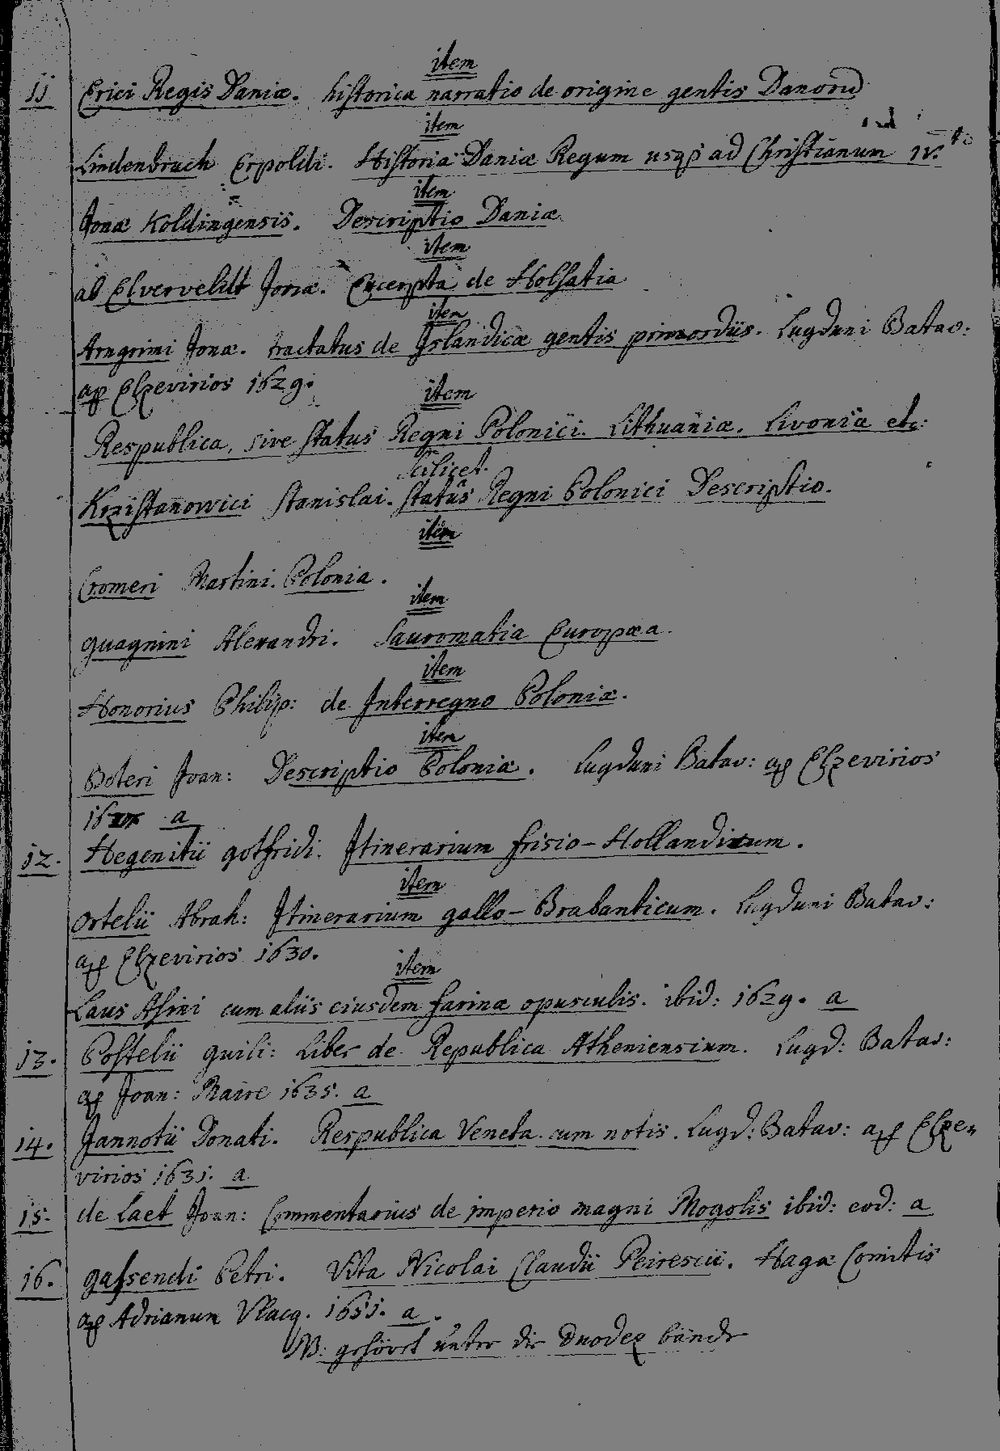 item
11 Erici Regis Daniæ. historica narratio de origine gentis Danorū
item
Lindenbruch Erpoldi. Historia Daniæ Regum usqꝫ ad Christianum IV.to
item
Jonæ Koldingensis. Descriptio Daniæ
item
ab Elverveldt Jonæ. Excerpta de Holsatia
item
Arngrimi Jonæ. tractatus de Islandicæ gentis primordiis. Lugduni Batav:
ap Elzevirios 1629.
item
Respublica, sive status Regni Polonici. Lithuaniæ. Livoniæ etc:
scilicet.
Krzistanowici Stanislai. status Regni Polonici Descriptio.
item
Cromeri Martini. Polonia.
item
guagnini Alexandri. Sauromatia Europæa.
item
Honorius Philip: de Interregno Poloniæ.
item
Boteri Joan: Descriptio Poloniæ. Lugduni Batav: ap Elzevirios
a
12. Hegenitii gotfridi. Itinerarium frisio-Hollandicum.
item
Ortelii Abrah: Itinerarium gallo-Brabanticum. Lugduni Batav:
ap Elzevirios 1630.
item
Laus Asini cum aliis eiusdem farinæ opusculis. ibid: 1629. a
13. Postelii guili: Liber de Republica Atheniensium. Lugd: Batav:
ap Joan: Maire 1635. a
14. Jannotii Donati. Respublica Veneta cum notis. Lugd: Batav: ap Elze-
virios 1631. a
15. de Laet Joan: Commentarius de imperio magni Mogolis ibid: eod: a
16. gassendi Petri. Vita Nicolai Claudii Peirescii. Hagæ Comitis
ap Adrianum Vlacq. 1651. a.
NB: gehöret unter die Duodez bände